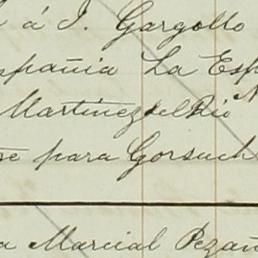 á J. Gargollo
España La Esp
Martinez del Rio
para Gorsuch
Marcial Pezañ